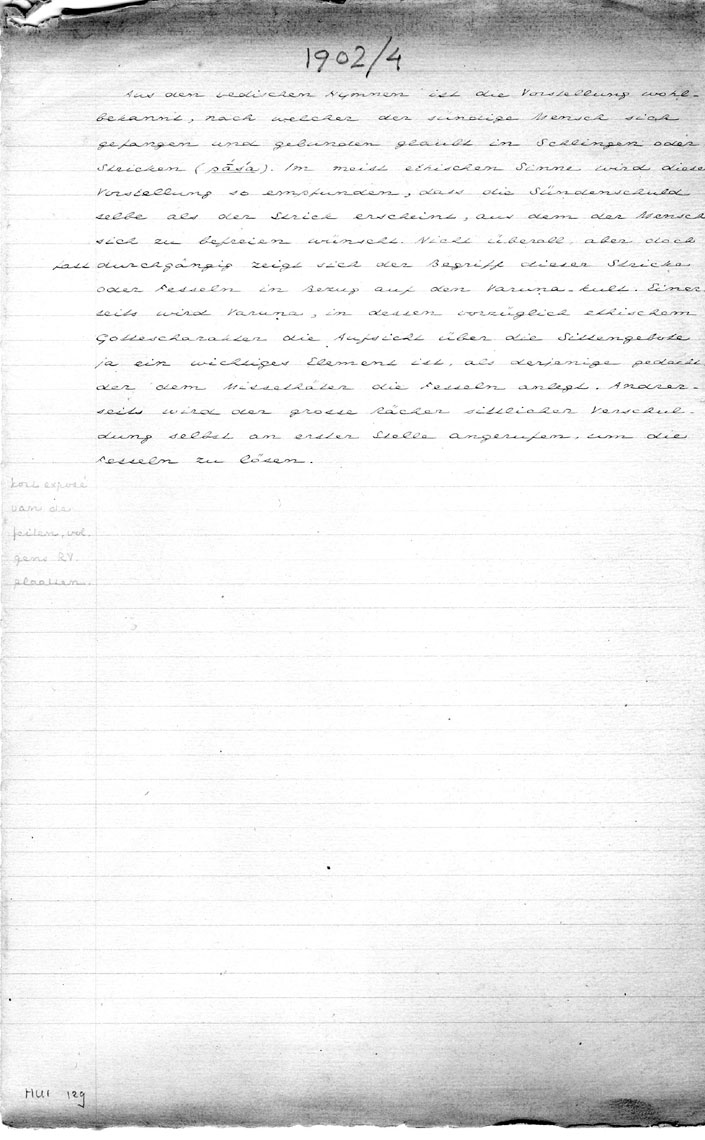 1902/4
Aus den vedischen Hymnen ist die Vorstellung wohl-
bekannt, nach welcher der sündige Mensch sich
gefangen und gebunden glaubt in Schlingen oder
Stricken (pāśa). Im meist ethischen Sinne wird diese
Vorstellung so empfunden, dass die Sündenschuld
selbe als der Strick erscheint, aus dem der Mensch
sich zu befreien wünscht. Nicht überall, aber doch
fast durchgängig zeigt sich der Begriff dieser Stricke
oder Fesseln in Bezug auf den Varuṇa-kult. Einer-
seits wird Varuṇa, in dessen vorzüglich ethischem
Gottescharakter die Aufsicht über die Sittengebote
ja ein wichtiges Element ist, als derjenige gedacht
der dem Missethäter die Fesseln anlegt. Andrer-
seits wird der grosse Rächer sittlicher Verschul-
dung selbst an erster Stelle angerufen, um die
Fesseln zu lösen.
kort exposé
van de
feiten, vol-
gens RV.
plaatsen.
HUI 129